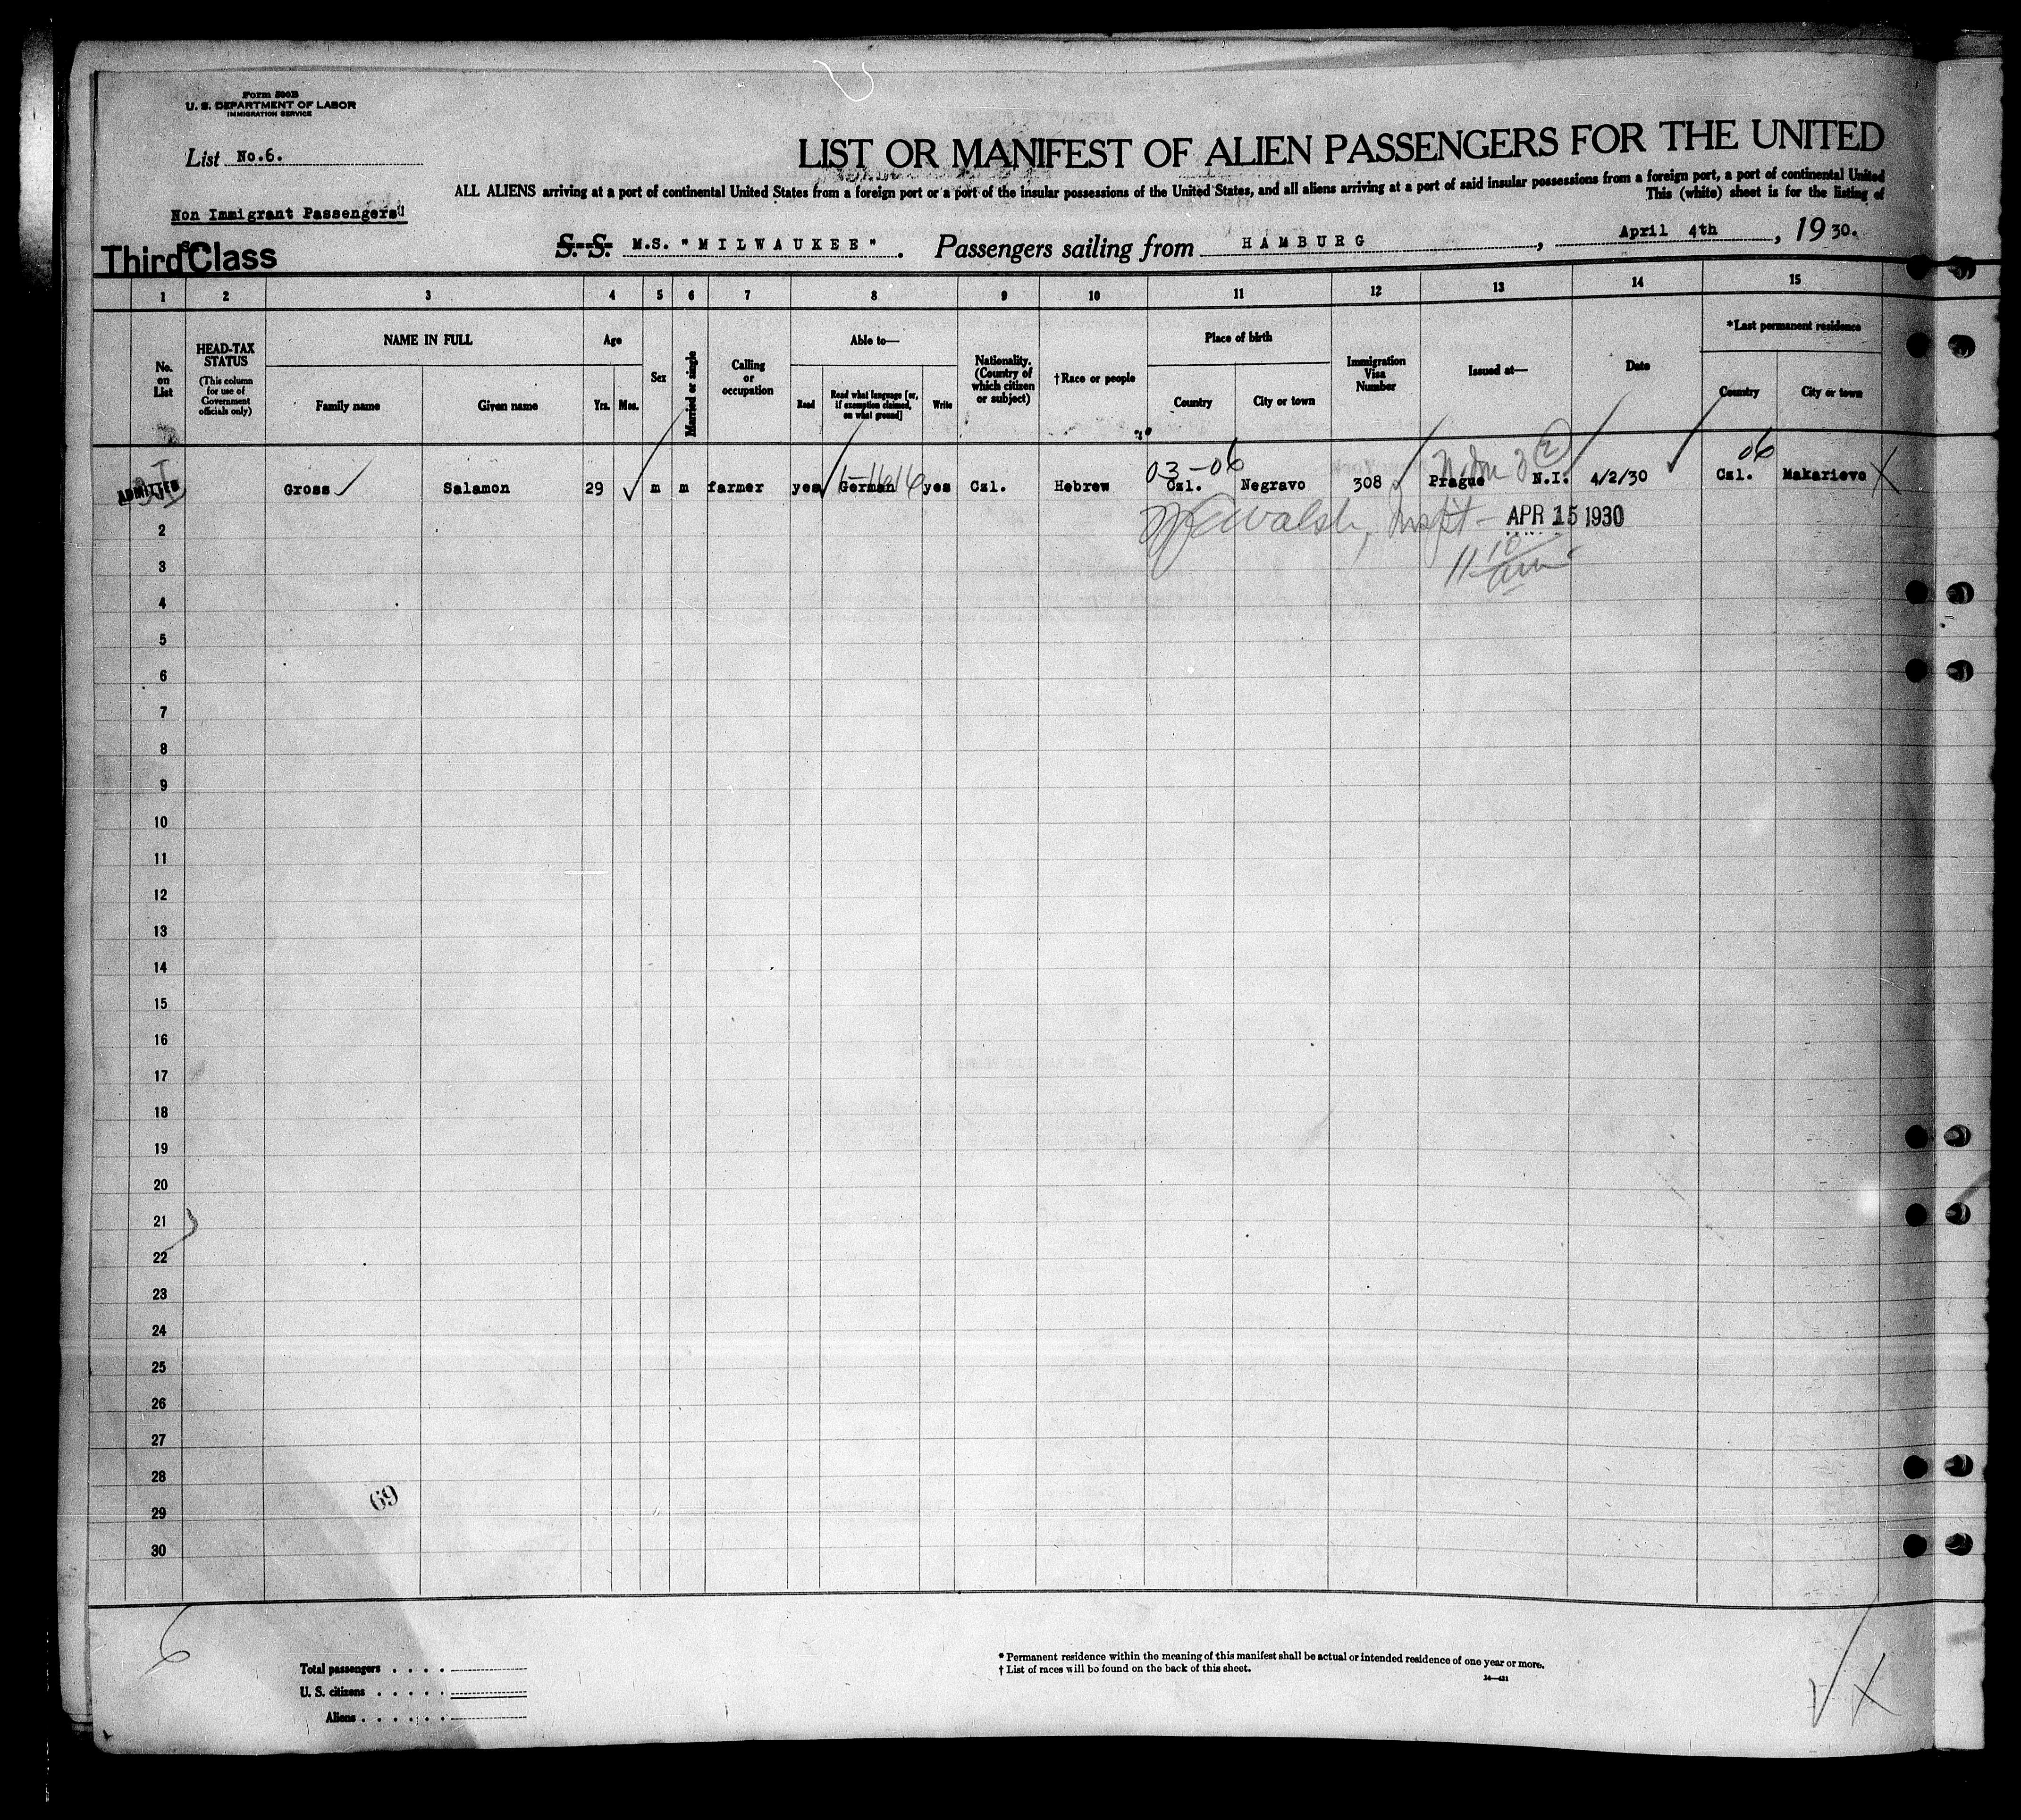 Form 500B
U. S. DEPARTMENT OF LABOR
IMMIGRATION SERVICE
List No.6.
LIST OR MANIFEST OF ALIEN PASSENGERS FOR THE UNITED
ALL ALIENS arriving at a port of continental United States from a foreign port or a port of the insular possessions of the United States, and all aliens arriving at a port of said insular possessions from a foreign port, a port of continental United
This (white) sheet is for the listing of
Non Immigrant Passengers
Third Class
S. S. M.S. "MILWAUKEE". Passengers sailing from HAMBURG, April 4th, 1930.
1 2 3 4 5 6 7 8 9 10 11 12 13 14 15
No. on List
HEAD-TAX STATUS (This column for use of Government officials only)
NAME IN FULL
Family name Given name
Age
Yrs. Mos.
Sex
Married or single
Calling or occupation
Able to—
Read
Read what language [or, if exemption claimed, on what ground]
Write
Nationality. (Country of which citizen or subject)
†Race or people
Place of birth
Country City or town
Immigration Visa Number
Issued at—
Date
*Last permanent residence
Country City or town
03-06 06
ADMITTED Gross Salamon 29 m m farmer yes German yes Czl. Hebrew Czl. Negravo 308 Prague N.I. 4/2/30 Czl. Makarievo
Walsh, APR 15 1930
2
3
4
5
6
7
8
9
10
11
12
13
14
15
16
17
18
19
20
21
22
23
24
25
26
27
28
69
29
30
6
Total passengers
U. S. citizens
Aliens
* Permanent residence within the meaning of this manifest shall be actual or intended residence of one year or more.
† List of races will be found on the back of this sheet.